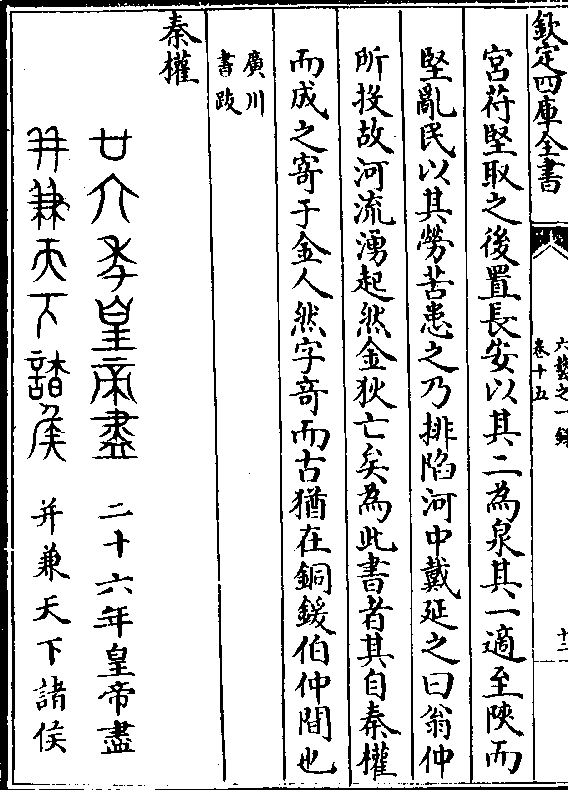 欽定四庫全書
六藝之一錄
卷十五
十二
宮苻堅取之後置長安以其二為泉其一適至陝而
堅亂民以其勞苦患之乃排陷河中戴延之曰翁仲
所投故河流湧起然金狄亡矣為此書者其自秦權
而成之寄于金人然字竒而古猶在銅鍰伯仲間也
廣川
書跋
秦權
廿六年皇帝盡 二十六年皇帝盡
并兼天下諸侯 并兼天下諸侯